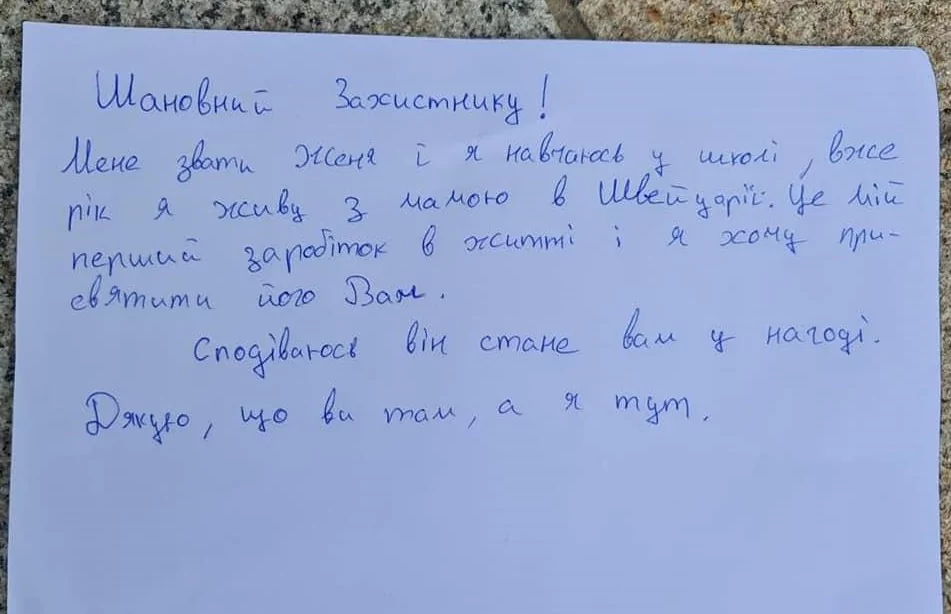 Шановний Захистнику!
Мене звати Женя і я навчаюсь у школі, вже
рік я живу з мамою в Швейцарії. Це мій
перший заробіток в житті і я хочу при-
святити його Вам.
Сподіваюсь він стане вам у нагоді.
Дякую, що ви там, а я тут.